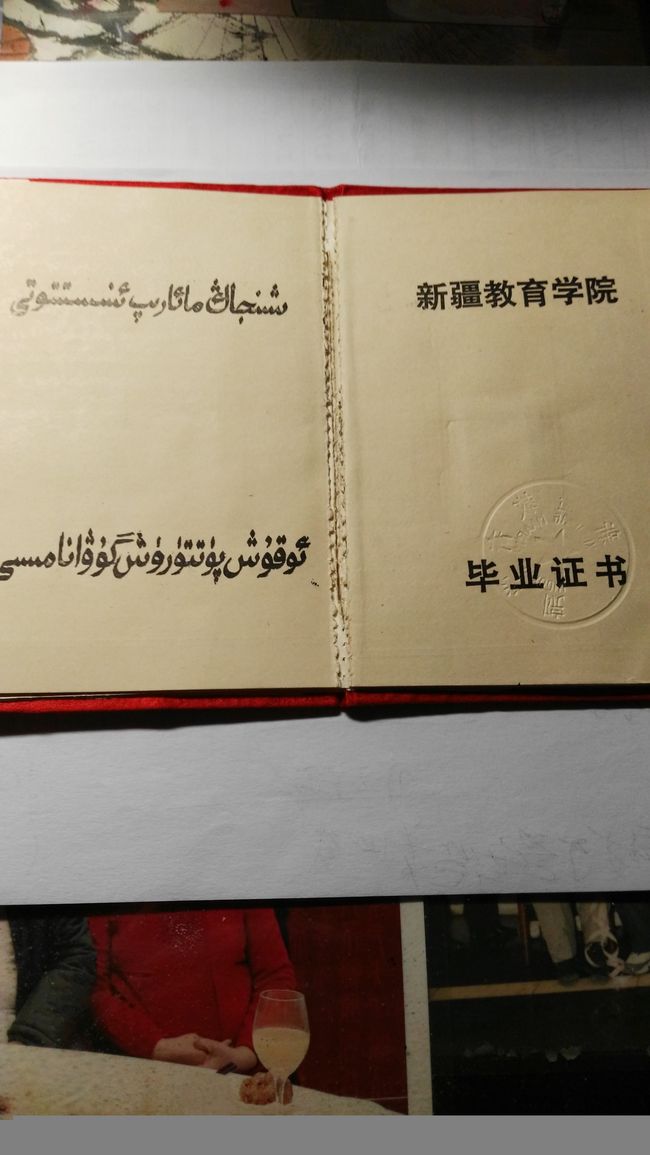 شىنجاڭ مائارىپ ئىنىستىتوتى
ئوقۇش پۈتتۈرۈش گۇۋانامىسى
新疆教育学院
毕业证书